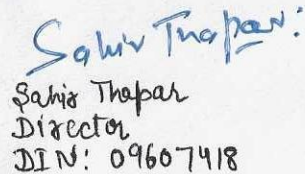 Sahir Thapar:
Sahir Thapar
Director
DIN: 09607418